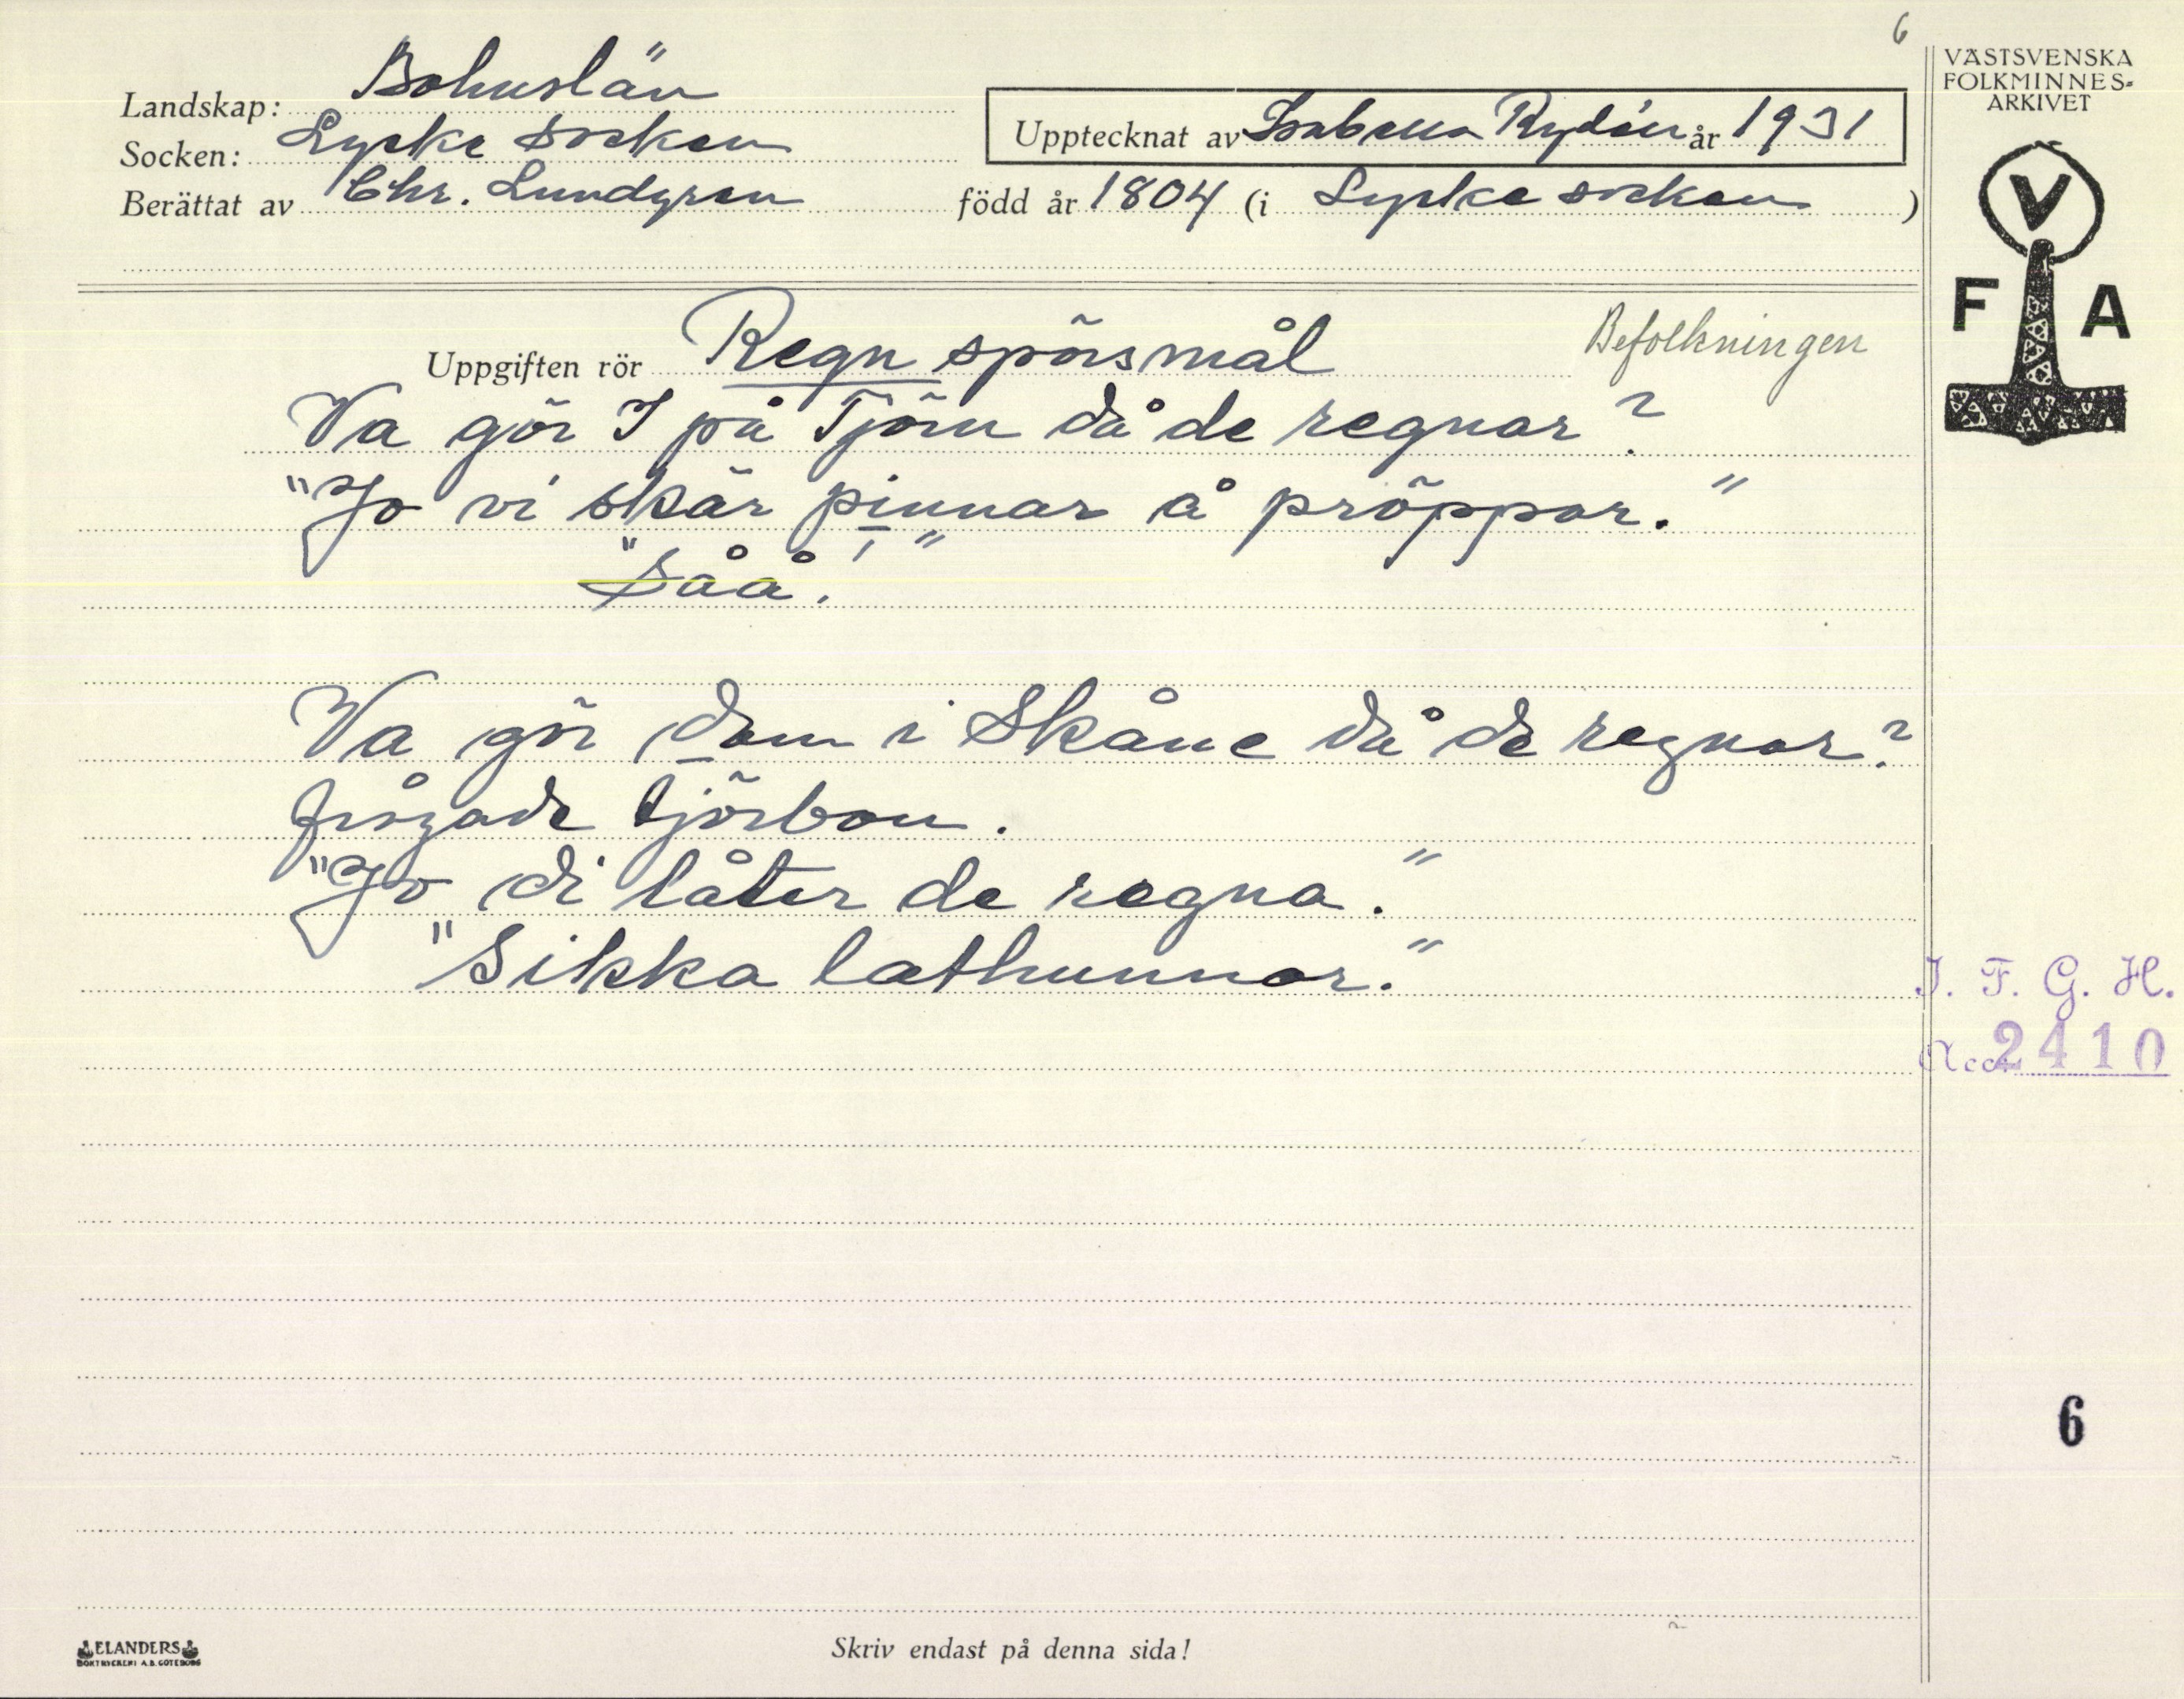 6
VÄSTSVENSKA
FOLKMINNES-
ARKIVET
Landskap: Bohuslän
Socken: Lycke socken
Upptecknat av Isabella Rydén år 1931
Berättat av Chr. Lundgren född år 1804 (i Lycke socken)
V
F A
Uppgiften rör Regn spörsmål
Befolkningen
Va gör I på Tjörn då de regnar?
"Jo vi skär pinnar å pröppar."
"Såå!"
Va gör dom i Skåne då de regnar?
frågade tjörbon.
"Jo di låter de regna."
"Sikka lathunnar."
I. F. G. H.
Acc. 2410
6
ELANDERS
BOKTRYCKERI A.B. GÖTEBORG
Skriv endast på denna sida!